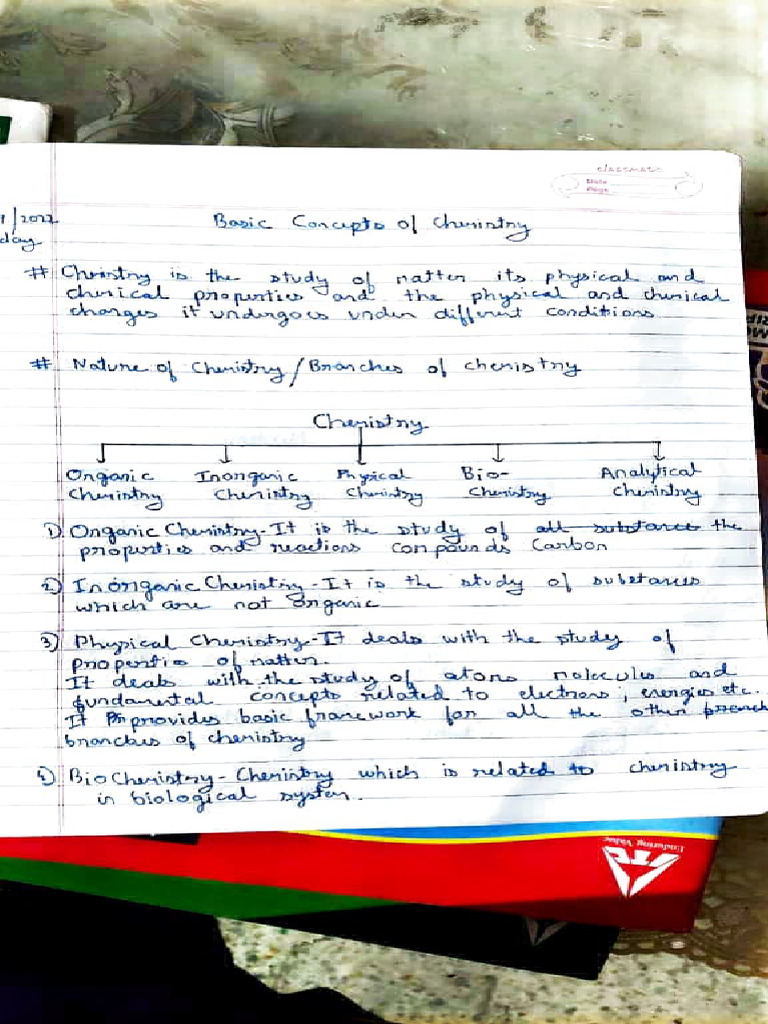 classmate
Date
Page
1/2022
day
Basic Concepts of Chemistry
# Chemistry is the study of matter its physical and
chemical properties and the physical and chemical
changes it undergoes under different conditions.
# Nature of Chemistry / Branches of chemistry
Chemistry
Organic Inorganic Physical Bio- Analytical
Chemistry Chemistry Chemistry Chemistry Chemistry
1) Organic Chemistry - It is the study of all substance the
properties and reactions compounds Carbon
2) Inorganic Chemistry - It is the study of substances
which are not organic
3) Physical Chemistry - It deals with the study of
propertie of matter.
It deals with the study of atoms molecules and
fundamental concepts related to electrons, energies etc.
It Pr provides basic framework for all the other branch
branches of chemistry
Bio Chemistry - Chemistry which is related to chemistry
in biological system.
Enduring Value